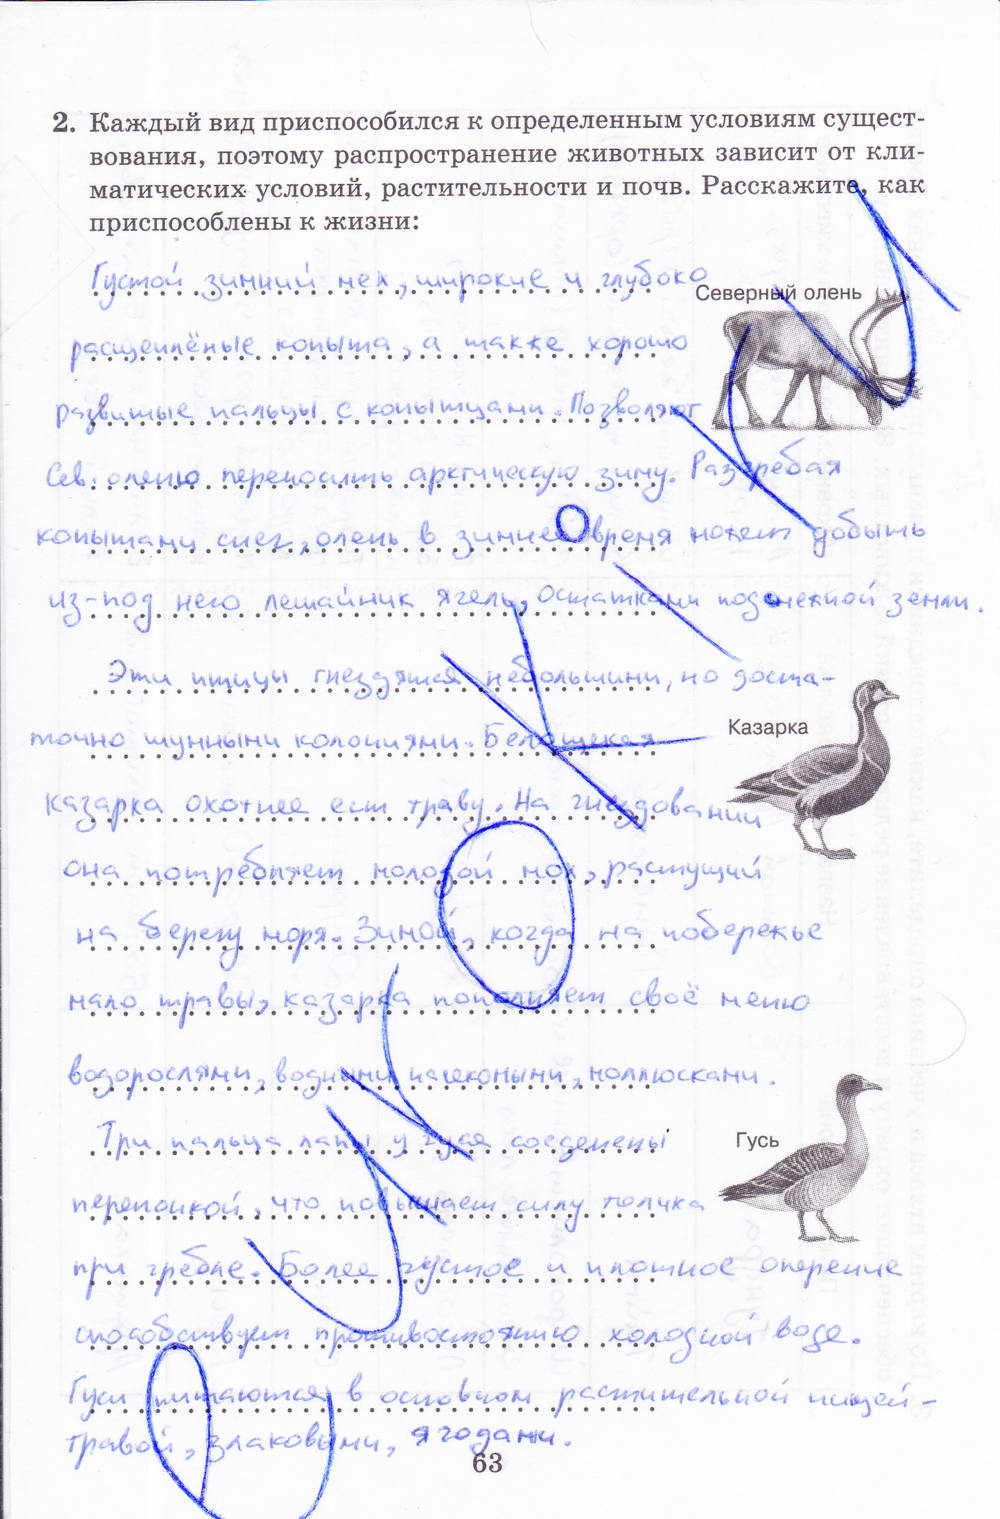 2. Каждый вид приспособился к определенным условиям сущест-
вования, поэтому распространение животных зависит от кли-
матических условий, растительности и почв. Расскажите, как
приспособлены к жизни:
Густой зимний мех, широкие и глубоко
Северный олень
расщеплёные копыта, а также хорошо
развитые пальцы с копытцами. Позволяют
Сев. оленю переносить арктическую зиму. Разгребая
копытами снег, олень в зимнее время может добыть
из-под него лешайник ягель, остатками подснежной земли.
Эти птицы гнездятся небольшими, но доста-
точно шумными колониями. Белощекая
Казарка
казарка охотнее ест траву. На гнездовании
она потребляет молодой мох, растущий
на берегу моря. Зимой, когда на побережье
мало травы, казарка пополняет своё меню
водорослями, водными насекомыми, моллюсками.
Три пальца лапы у гуся соеденены
Гусь
перепонкой, что повышает силу толчка
при гребле. Более густое и плотное оперение
способствует противостоянию холодной воде.
Гуси питаются в основном растительной пищей-
травой, злаковыми, ягодами.
63